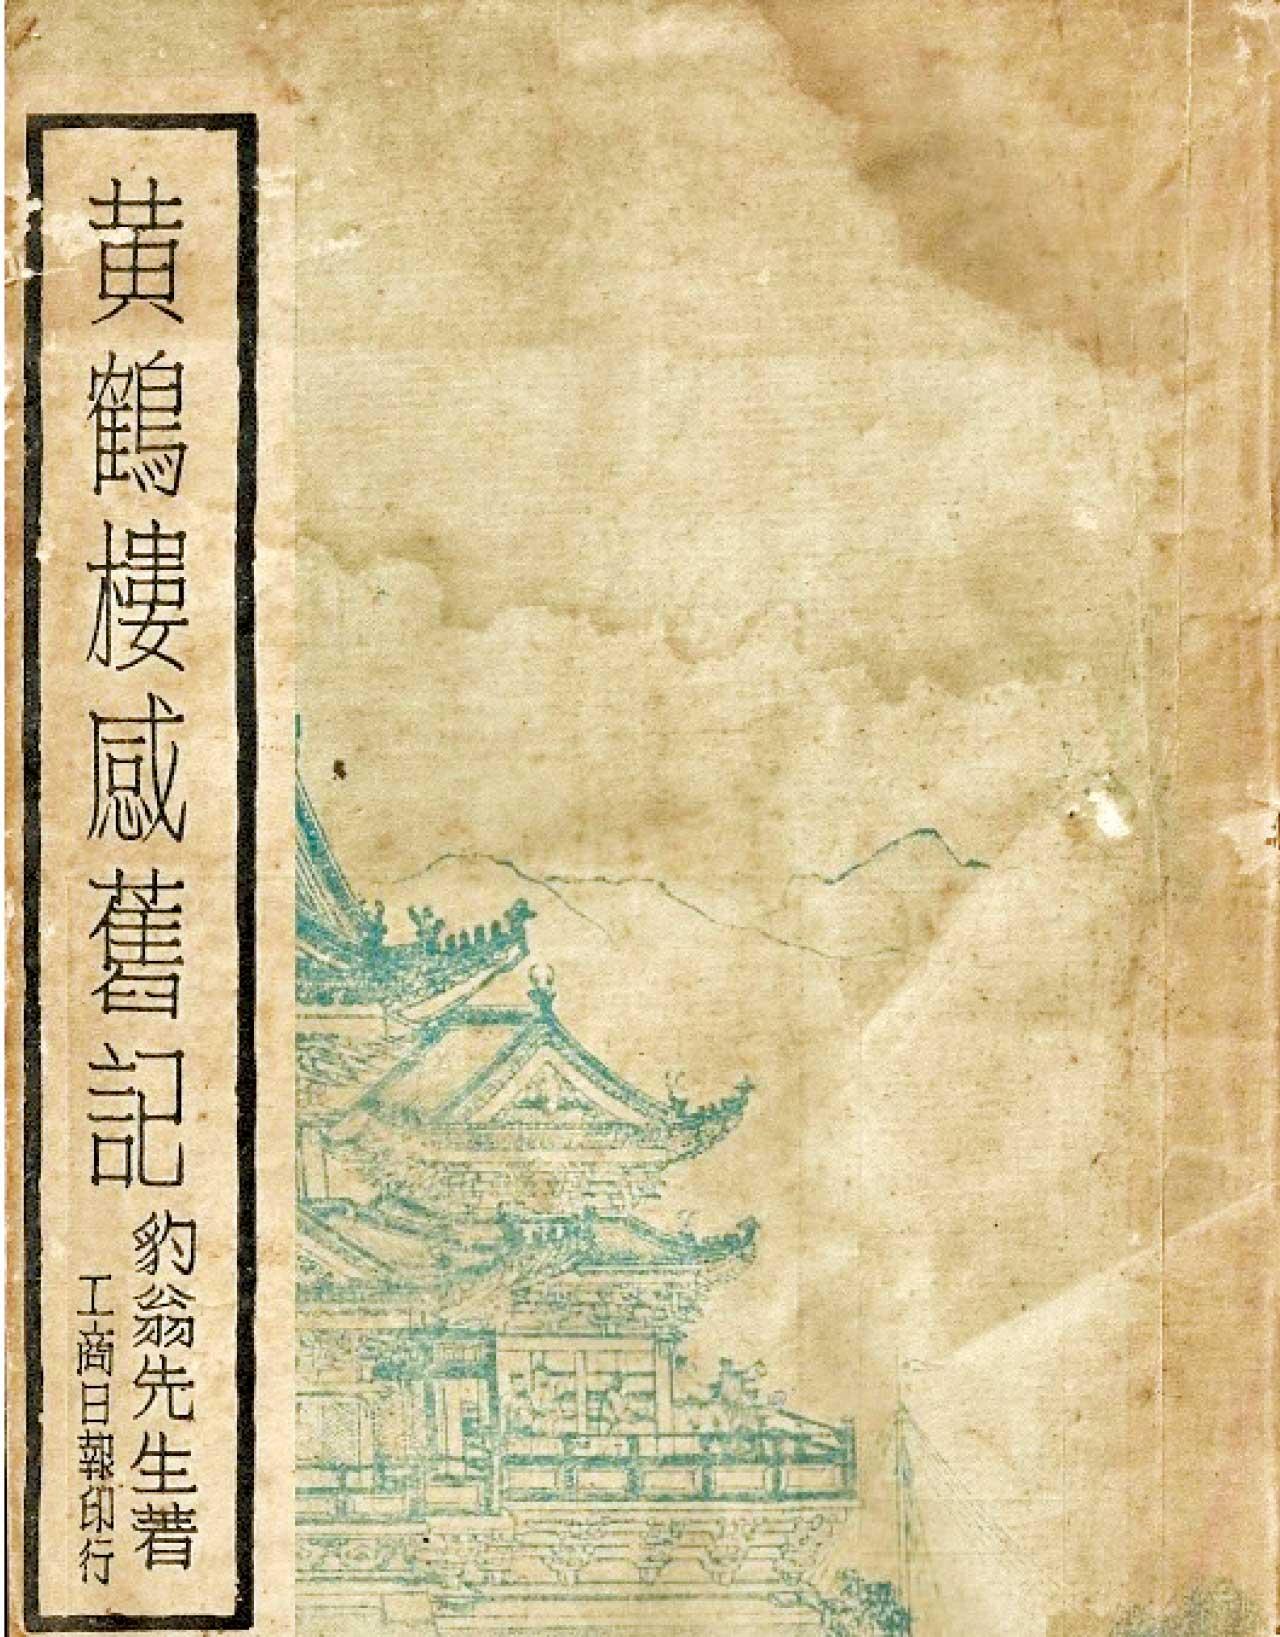 黄鶴樓感舊記
豹翁先生著
工商日報印行